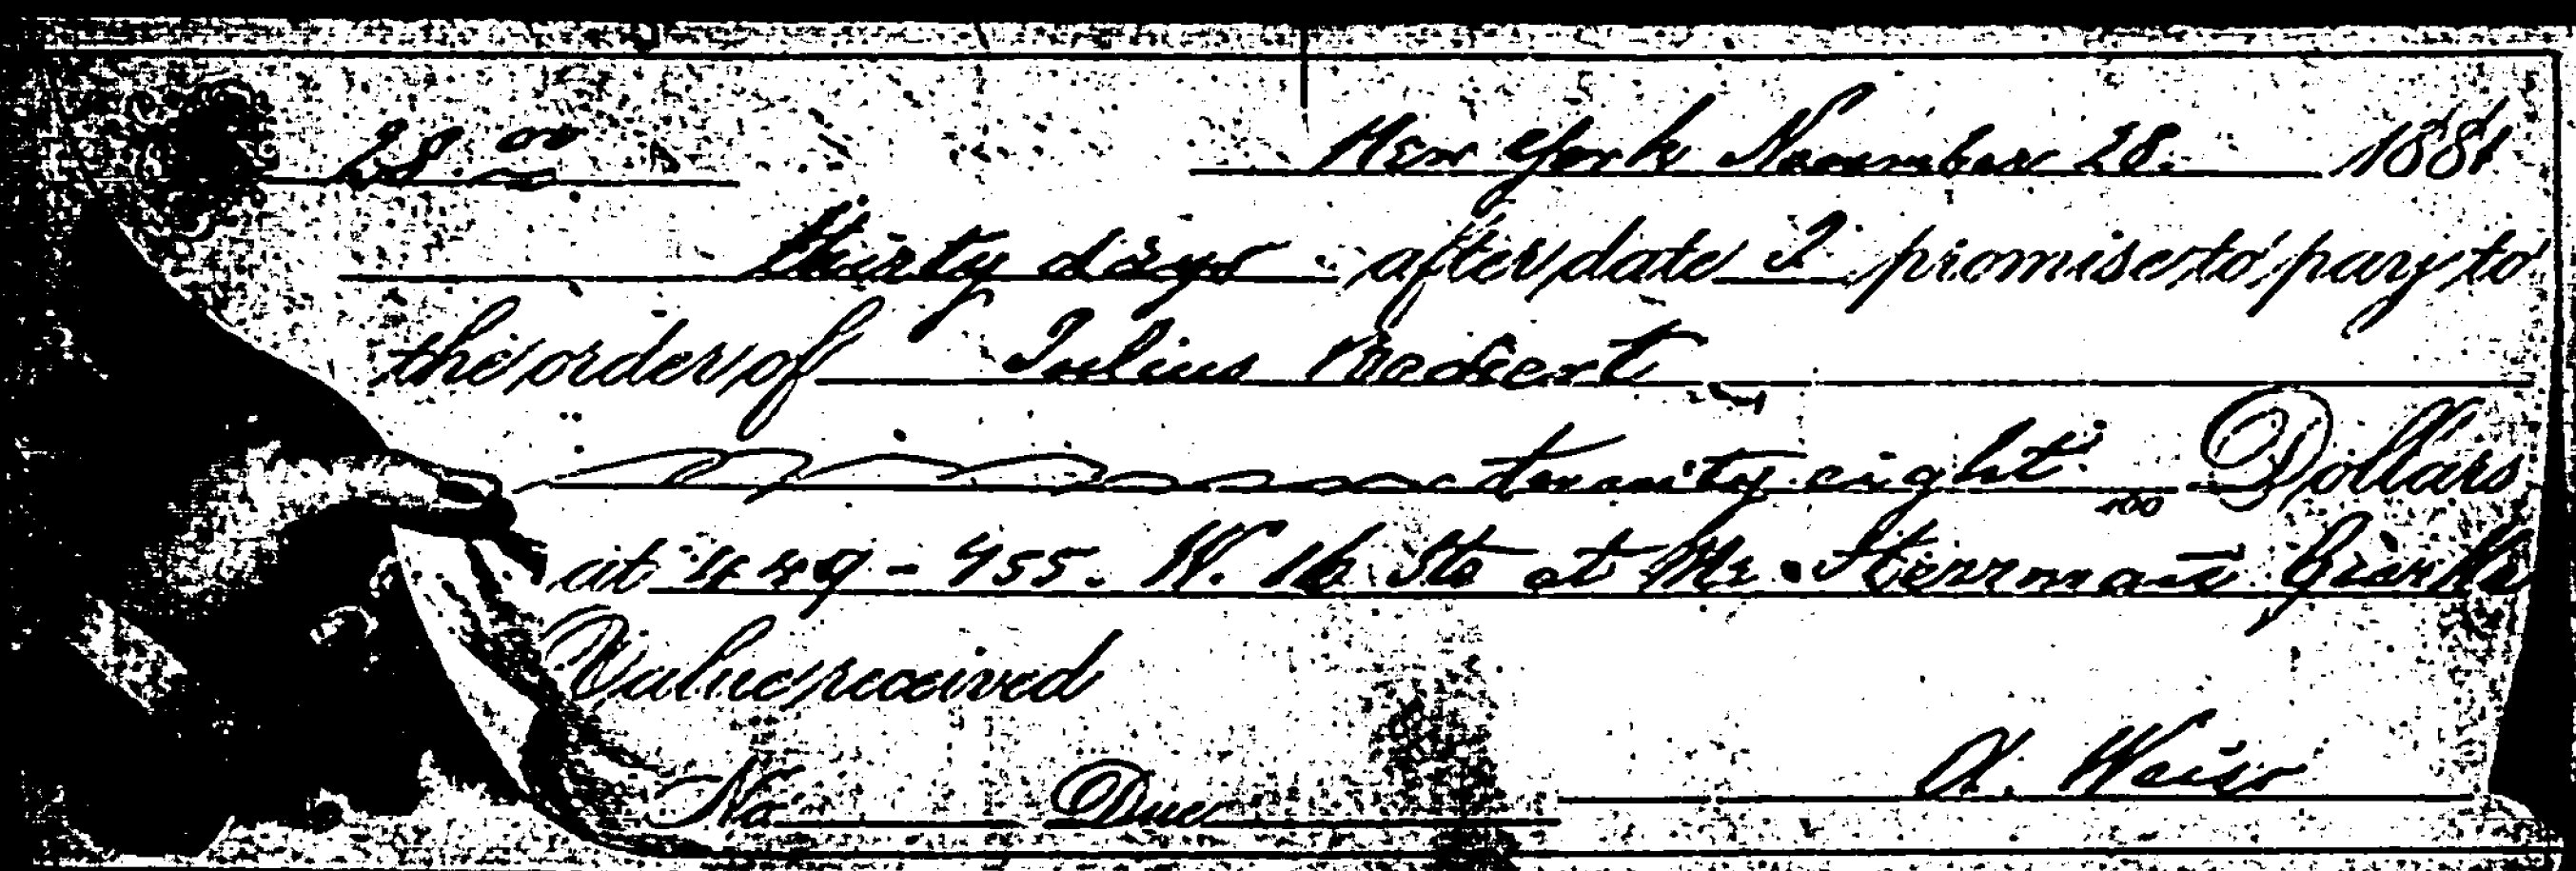 28.00 New York November 28. 1881
thirty days after date I promise to pay to
the order of Julius
twenty eight /100 Dollars
at 449 - 455. W. 16 Str at Mr. Herrman
Value received
No Due A. Weiss